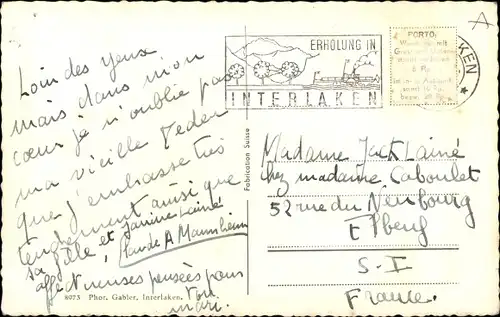 Loin des yeux
mais dans mon
cœur je n'oublie pas
ma vieille
que j'embrasse très
tendrement ainsi que
sa fille et Janine Lainé
Mannheim
affectueuses pensées pour
ton
mari.
8073 Phot. Gabler, Interlaken.
Fabrication Suisse
ERHOLUNG IN
INTERLAKEN
PORTO
KEN
Madame Jack Lainé
chez madame Caboulet
52 rue du Neubourg
Elbeuf
S-I
France.